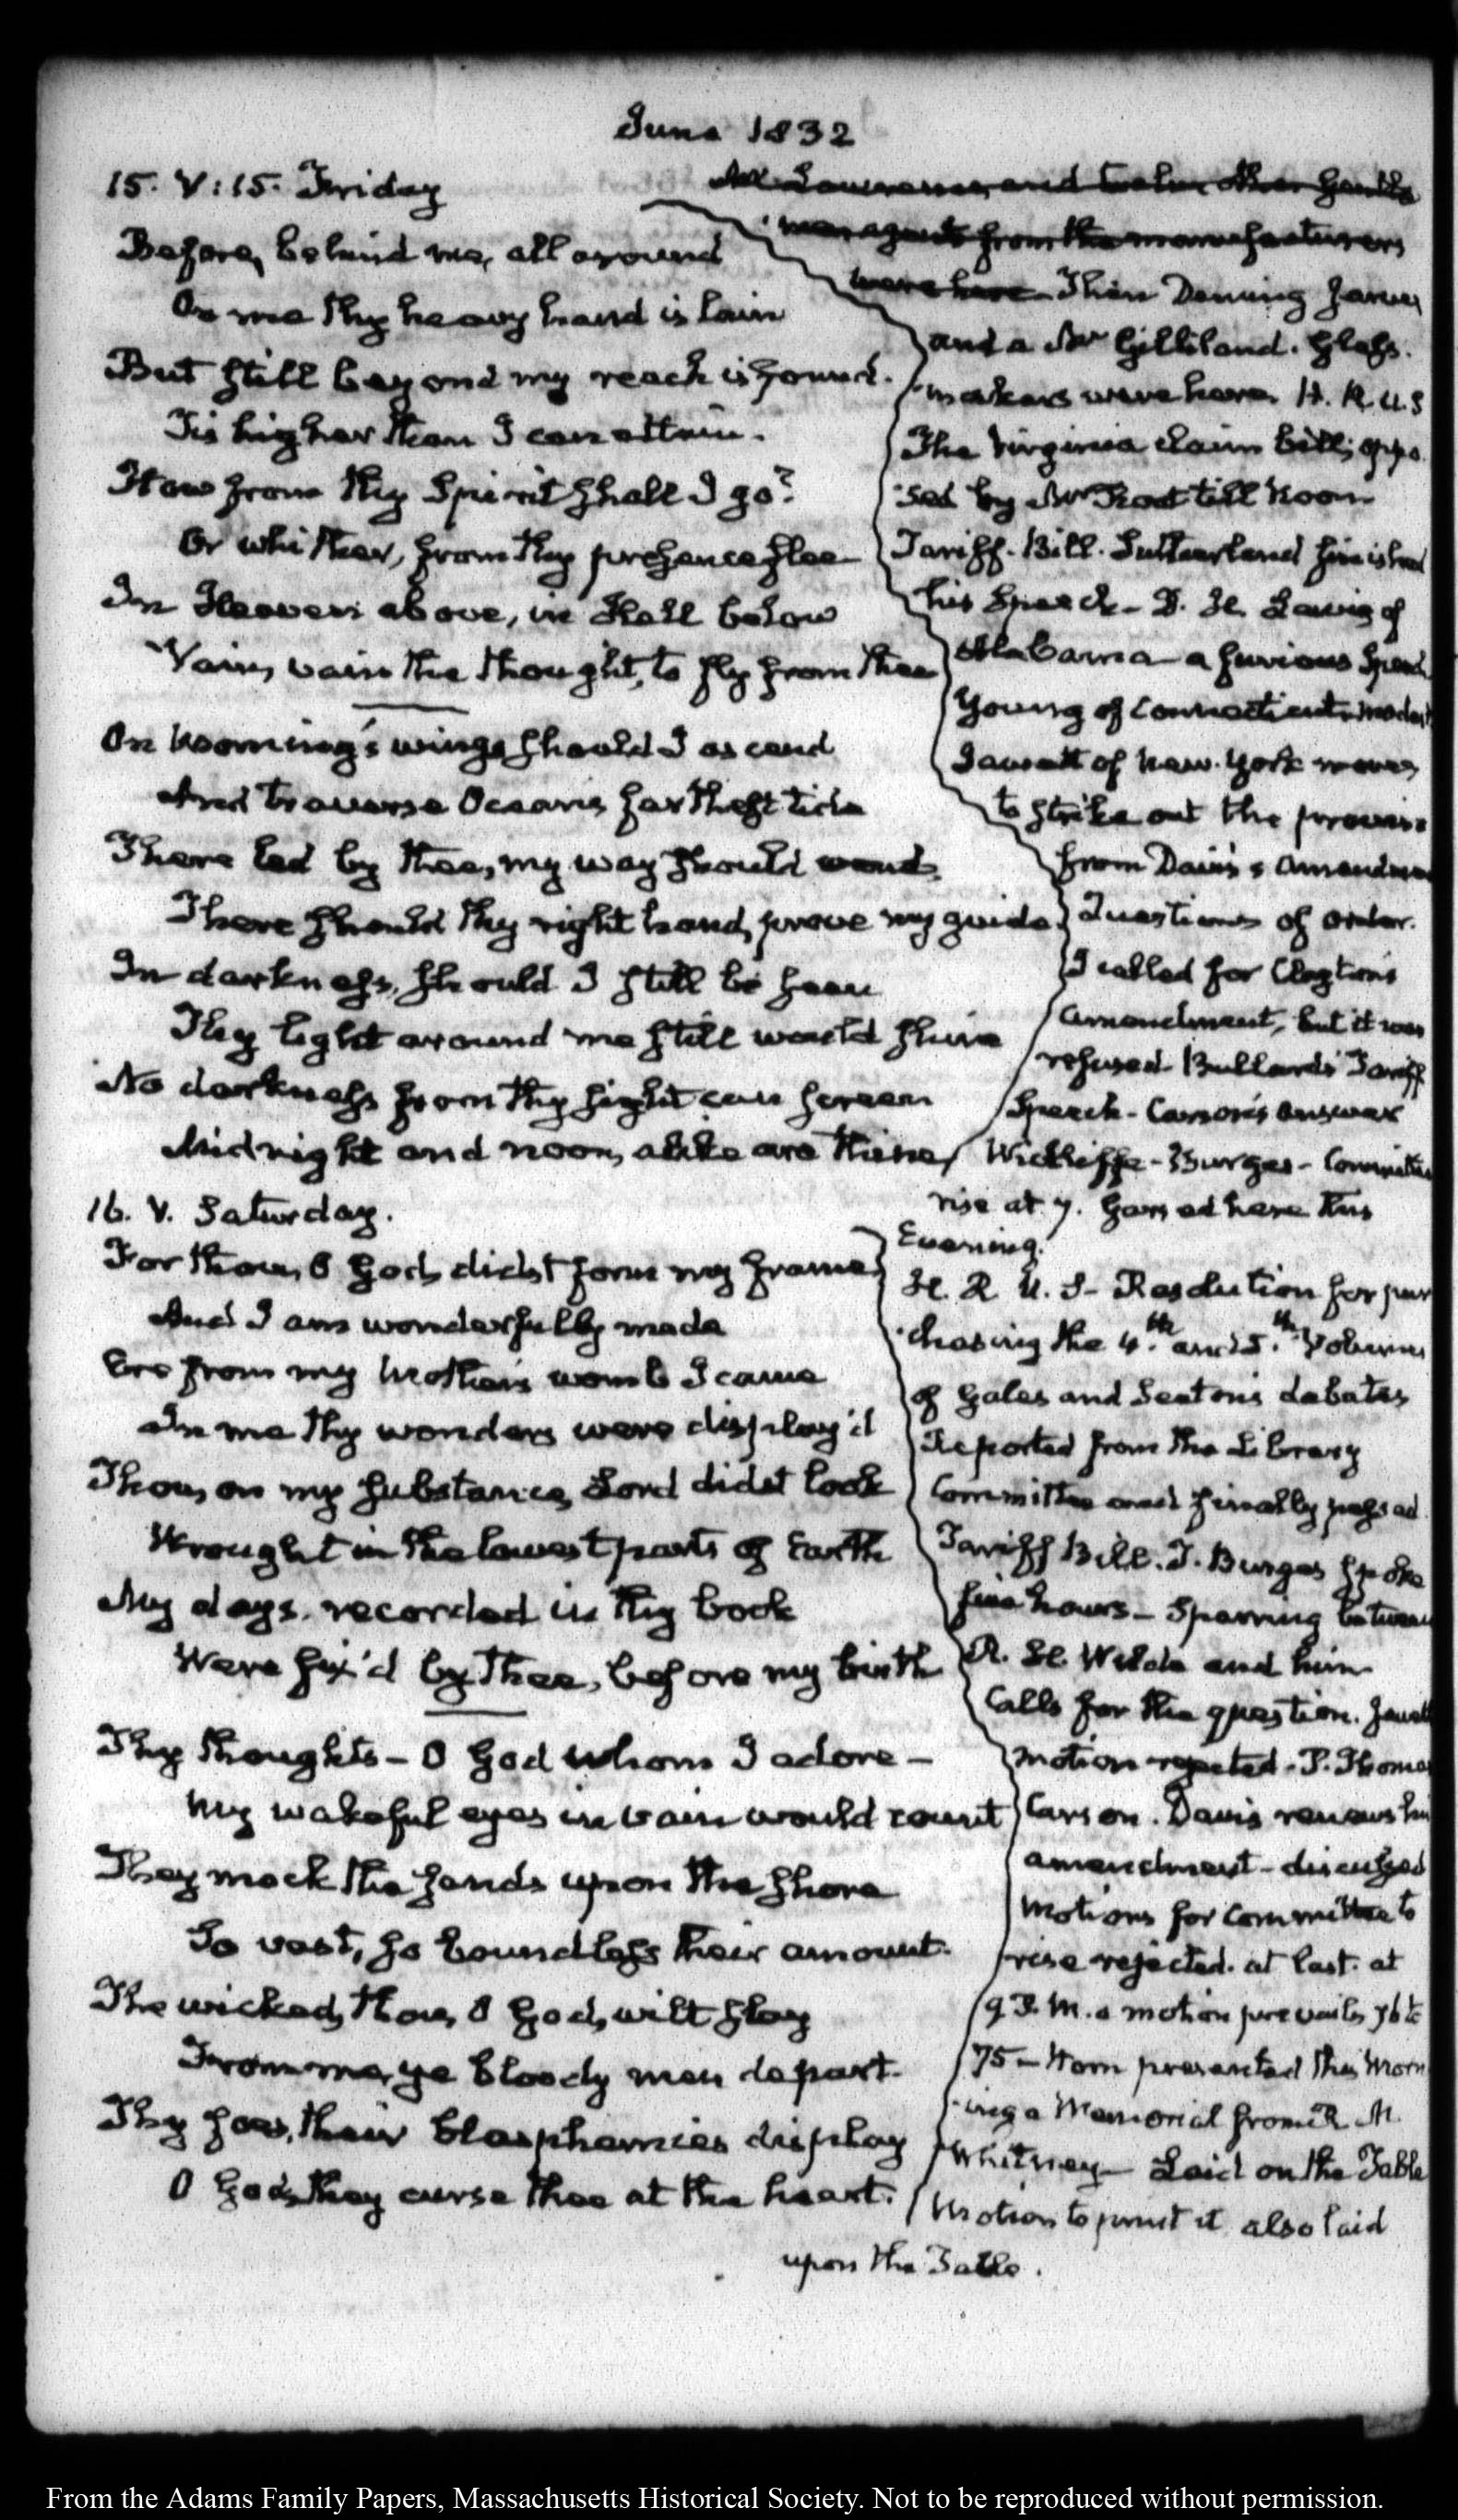 June 1832
15. V:15. Friday
Before, behind me, all around
On me thy heavy hand is lain
But still beyond my reach is found.
Tis higher than I can attain.
How from thy Spirit shall I go?
Or whither, from thy presence flee
In Heaven above, in Hell below
Vain, vain the thought, to fly from thee
On Morning's wings should I ascend
And traverse Oceans farthest tide
There led by thee, my way should wend
There should thy right hand, prove my guide
In darkness, should I still be seen
Thy light around me still would shine
No darkness from thy sight can screen
Midnight and noon, alike are thine
Mr Lawrence, and twelve other Gentle
men agents from the manufacturers
were here Then Deming Jarves
and a Mr Gilliland. Glass.
makers were here. H. R. U.S
The Virginia claim bill; oppo
sed by Mr Root till Noon
Tariff. Bill. Sutherland finished
his Speech- D. H. Lewis of
Alabama a furious Speech
Young of Connecticut,
Jewett of New-York moves
to strike out the proviso
from Davis's Amendment
Questions of order.
I called for Clayton's
amendment, but it was
refused. Bullard's Tariff
Speech- Carson's answer
Wickliffe- Burges- Committee
rise at 7. here this
Evening.
16. V. Saturday.
For thou, O God, didst form my frame
And I am wonderfully made
Ere from my Mother's womb I came
In me thy wonders were display'd
Thou, on my substance, Lord didst look
Wrought in the lowest parts of Earth
My days, recorded in thy book
Were fix'd by Thee, before my birth
Thy thoughts- O God whom I adore-
My wakeful eyes in vain would count
They mock the sands upon the shore
So vast, so boundless their amount.
The wicked, thou, O God, wilt slay
From me, ye bloody men depart.
Thy foes, their blasphemies display
O God, they curse thee at the heart.
H. R. U. S- Resolution for pur
chasing the 4.th and 5.th Volumes
of Gales and Seaton's debates
Reported from the Library
Committee and finally passed
Tariff Bill. T. Burges spoke
five hours- Sparring between
R. H. Wilde and him
Calls for the question. Jewett
motion rejected- P. Thomas
Carson. Davis renews his
amendment- discussed
Motions for Committee to
rise rejected. at last. at
9 P.M. a motion prevails 76 to
75- Horn presented this Morn
ing a Memorial from R. M.
Whitney- Laid on the Table
Motion to print it also laid
upon the Table.
From the Adams Family Papers, Massachusetts Historical Society. Not to be reproduced without permission.